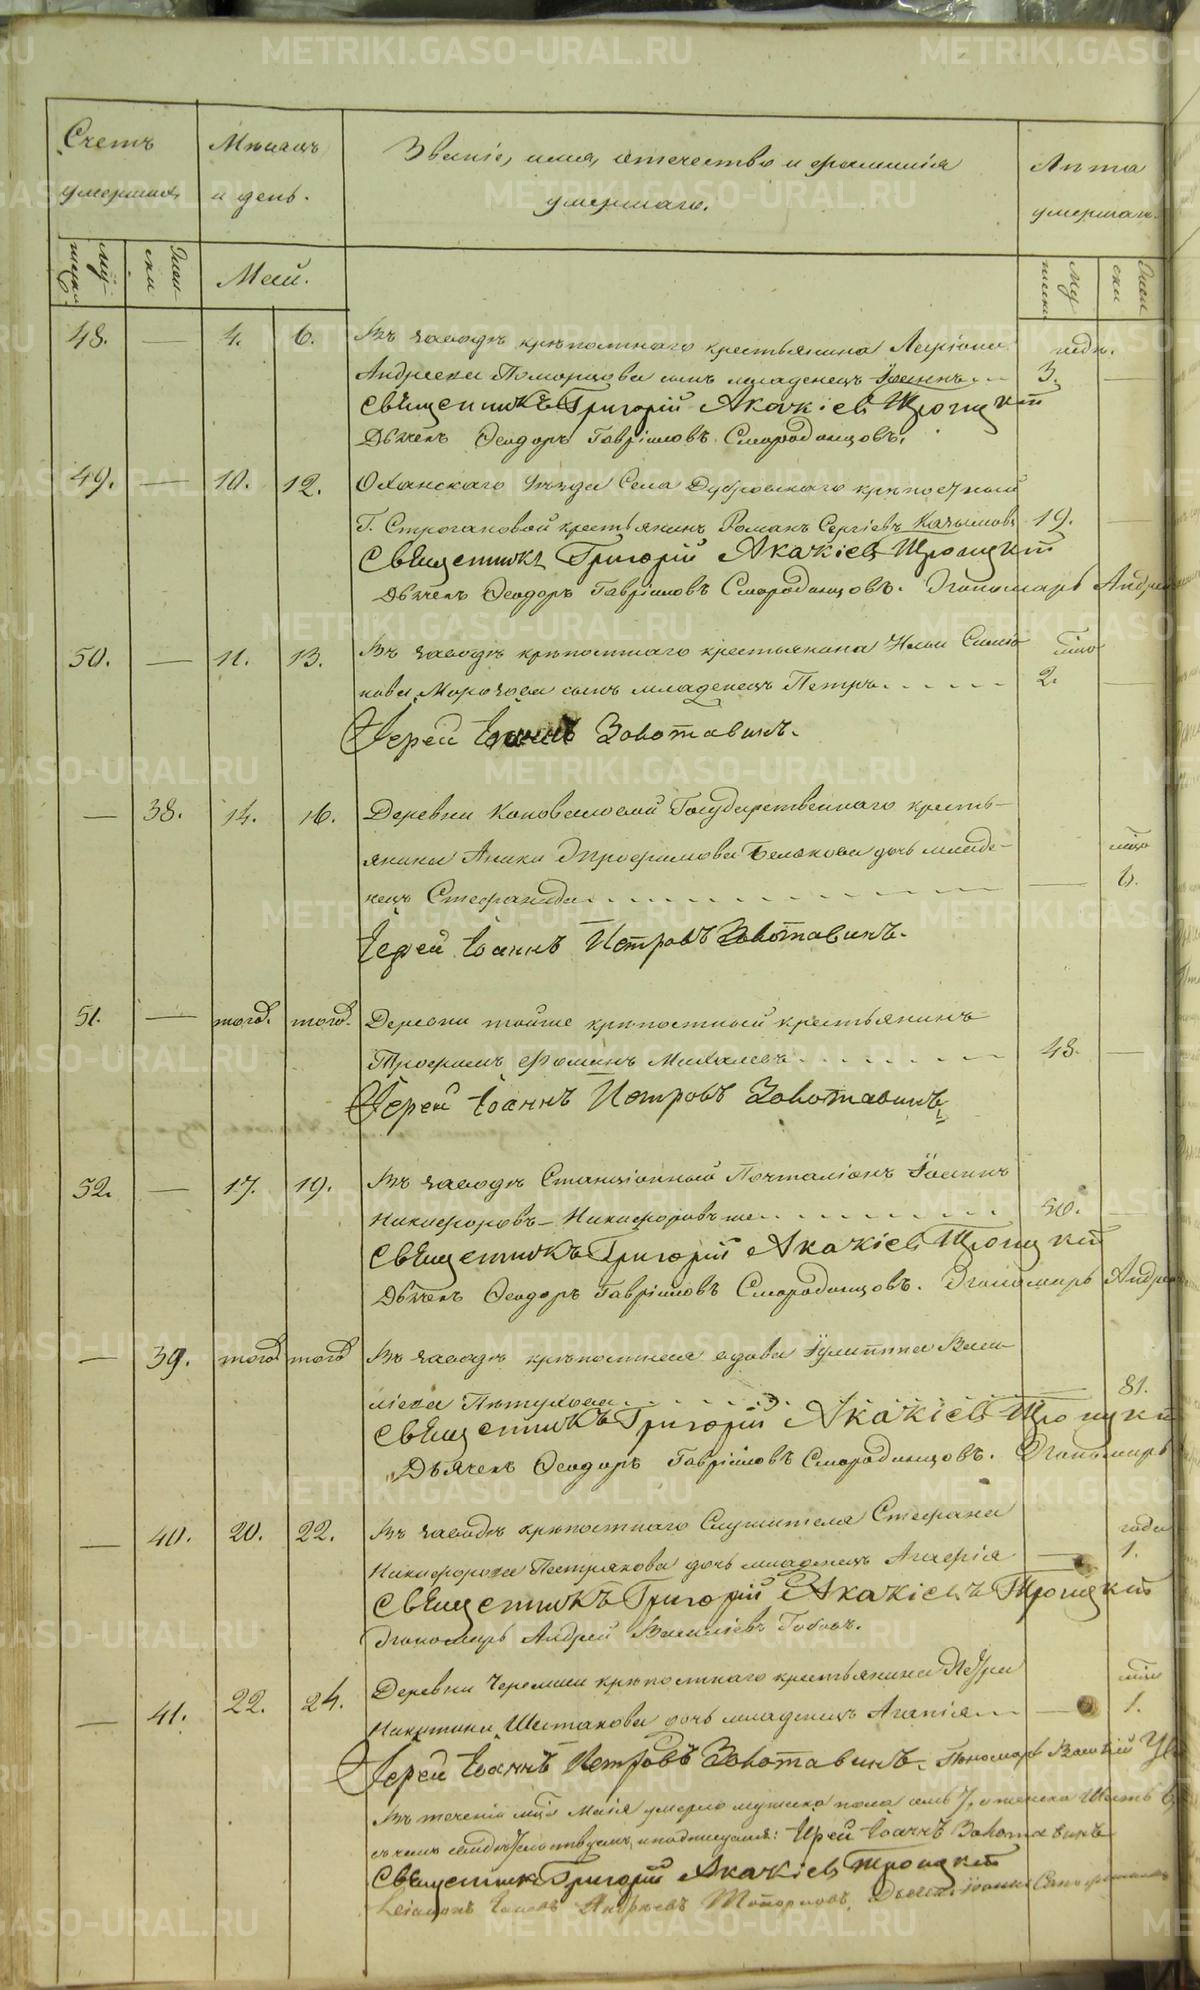 METRIKI.GASO-URAL.RU
Счетъ умершихъ
Мѣсяцъ и день.
Званіе, имя, отечество и фамилія умершаго.
Лѣта умершаго.
Мужеска
Женски
Май.
Мужеска
Женски
48. — 4. 6. Въ заводѣ крѣпостнаго крестьянина Ларіона недѣ.
Андреева Поморцова сынъ младенецъ Іоаннъ 3. —
Священникъ Григорій Акакіевъ Троицкій
Дьячекъ Ѳеодоръ Гавріиловъ Смородинцовъ.
49. — 10. 12. Оханскаго уѣзда Села Дубровскаго крѣпостный
Г. Строгановой крестьянинъ Романъ Сергіевъ 19. —
Священникъ Григорій Акакіевъ Троицкій
Дьячекъ Ѳеодоръ Гавріиловъ Смородинцовъ. Пономарь Андрей
50. — 11. 13. Въ заводѣ крѣпостнаго крестьянина Ильи
Морозова сынъ младенецъ Петръ 2. —
Іерей Іоаннъ Золотавинъ.
— 38. 14. 16. Деревни Коноваловой Государственнаго кресть-
янина Аники Трофимова Белякова дочь младе-
нецъ Стефанида — 6.
Іерей Іоаннъ Петровъ Золотавинъ.
51. — тогоже тогоже Деревни тойже крѣпостный крестьянинъ
Трофимъ Фоминъ Михалевъ 48. —
Іерей Іоаннъ Петровъ Золотавинъ
52. — 17. 19. Въ заводѣ Станціонный Почталіонъ Іоаннъ
Никифоровъ Никифоровъ же 50. —
Священникъ Григорій Акакіевъ Троицкій
Дьячекъ Ѳеодоръ Гавріиловъ Смородинцовъ. Пономарь Андрей
— 39. тогоже тогоже Въ заводѣ крѣпостная вдова Іулиттина Васи-
ліева Пѣтухова — 81.
Священникъ Григорій Акакіевъ Троицкій
Дьячекъ Ѳеодоръ Гавріиловъ Смородинцовъ. Пономарь
— 40. 20. 22. Въ заводѣ крѣпостнаго Служителя Стефана года
Никифорова Петрякова дочь младенецъ — 1.
Священникъ Григорій Акакіевъ Троицкій
Пономарь Андрей Василіевъ
— 41. 22. 24. Деревни Черемши крѣпостнаго крестьянина Петра
Никитина Шестакова дочь младенецъ Агапія — 1.
Іерей Іоаннъ Петровъ Золотавинъ. Пономарь
Въ теченіи мца Маія умерло мужска пола семь 7, а женска Шесть 6
въ чемъ и подписуемся: Іерей Іоаннъ Золотавинъ
Священникъ Григорій Акакіевъ Троицкій
Діаконъ Андреевъ Топорковъ, Дьячекъ Іоаннъ